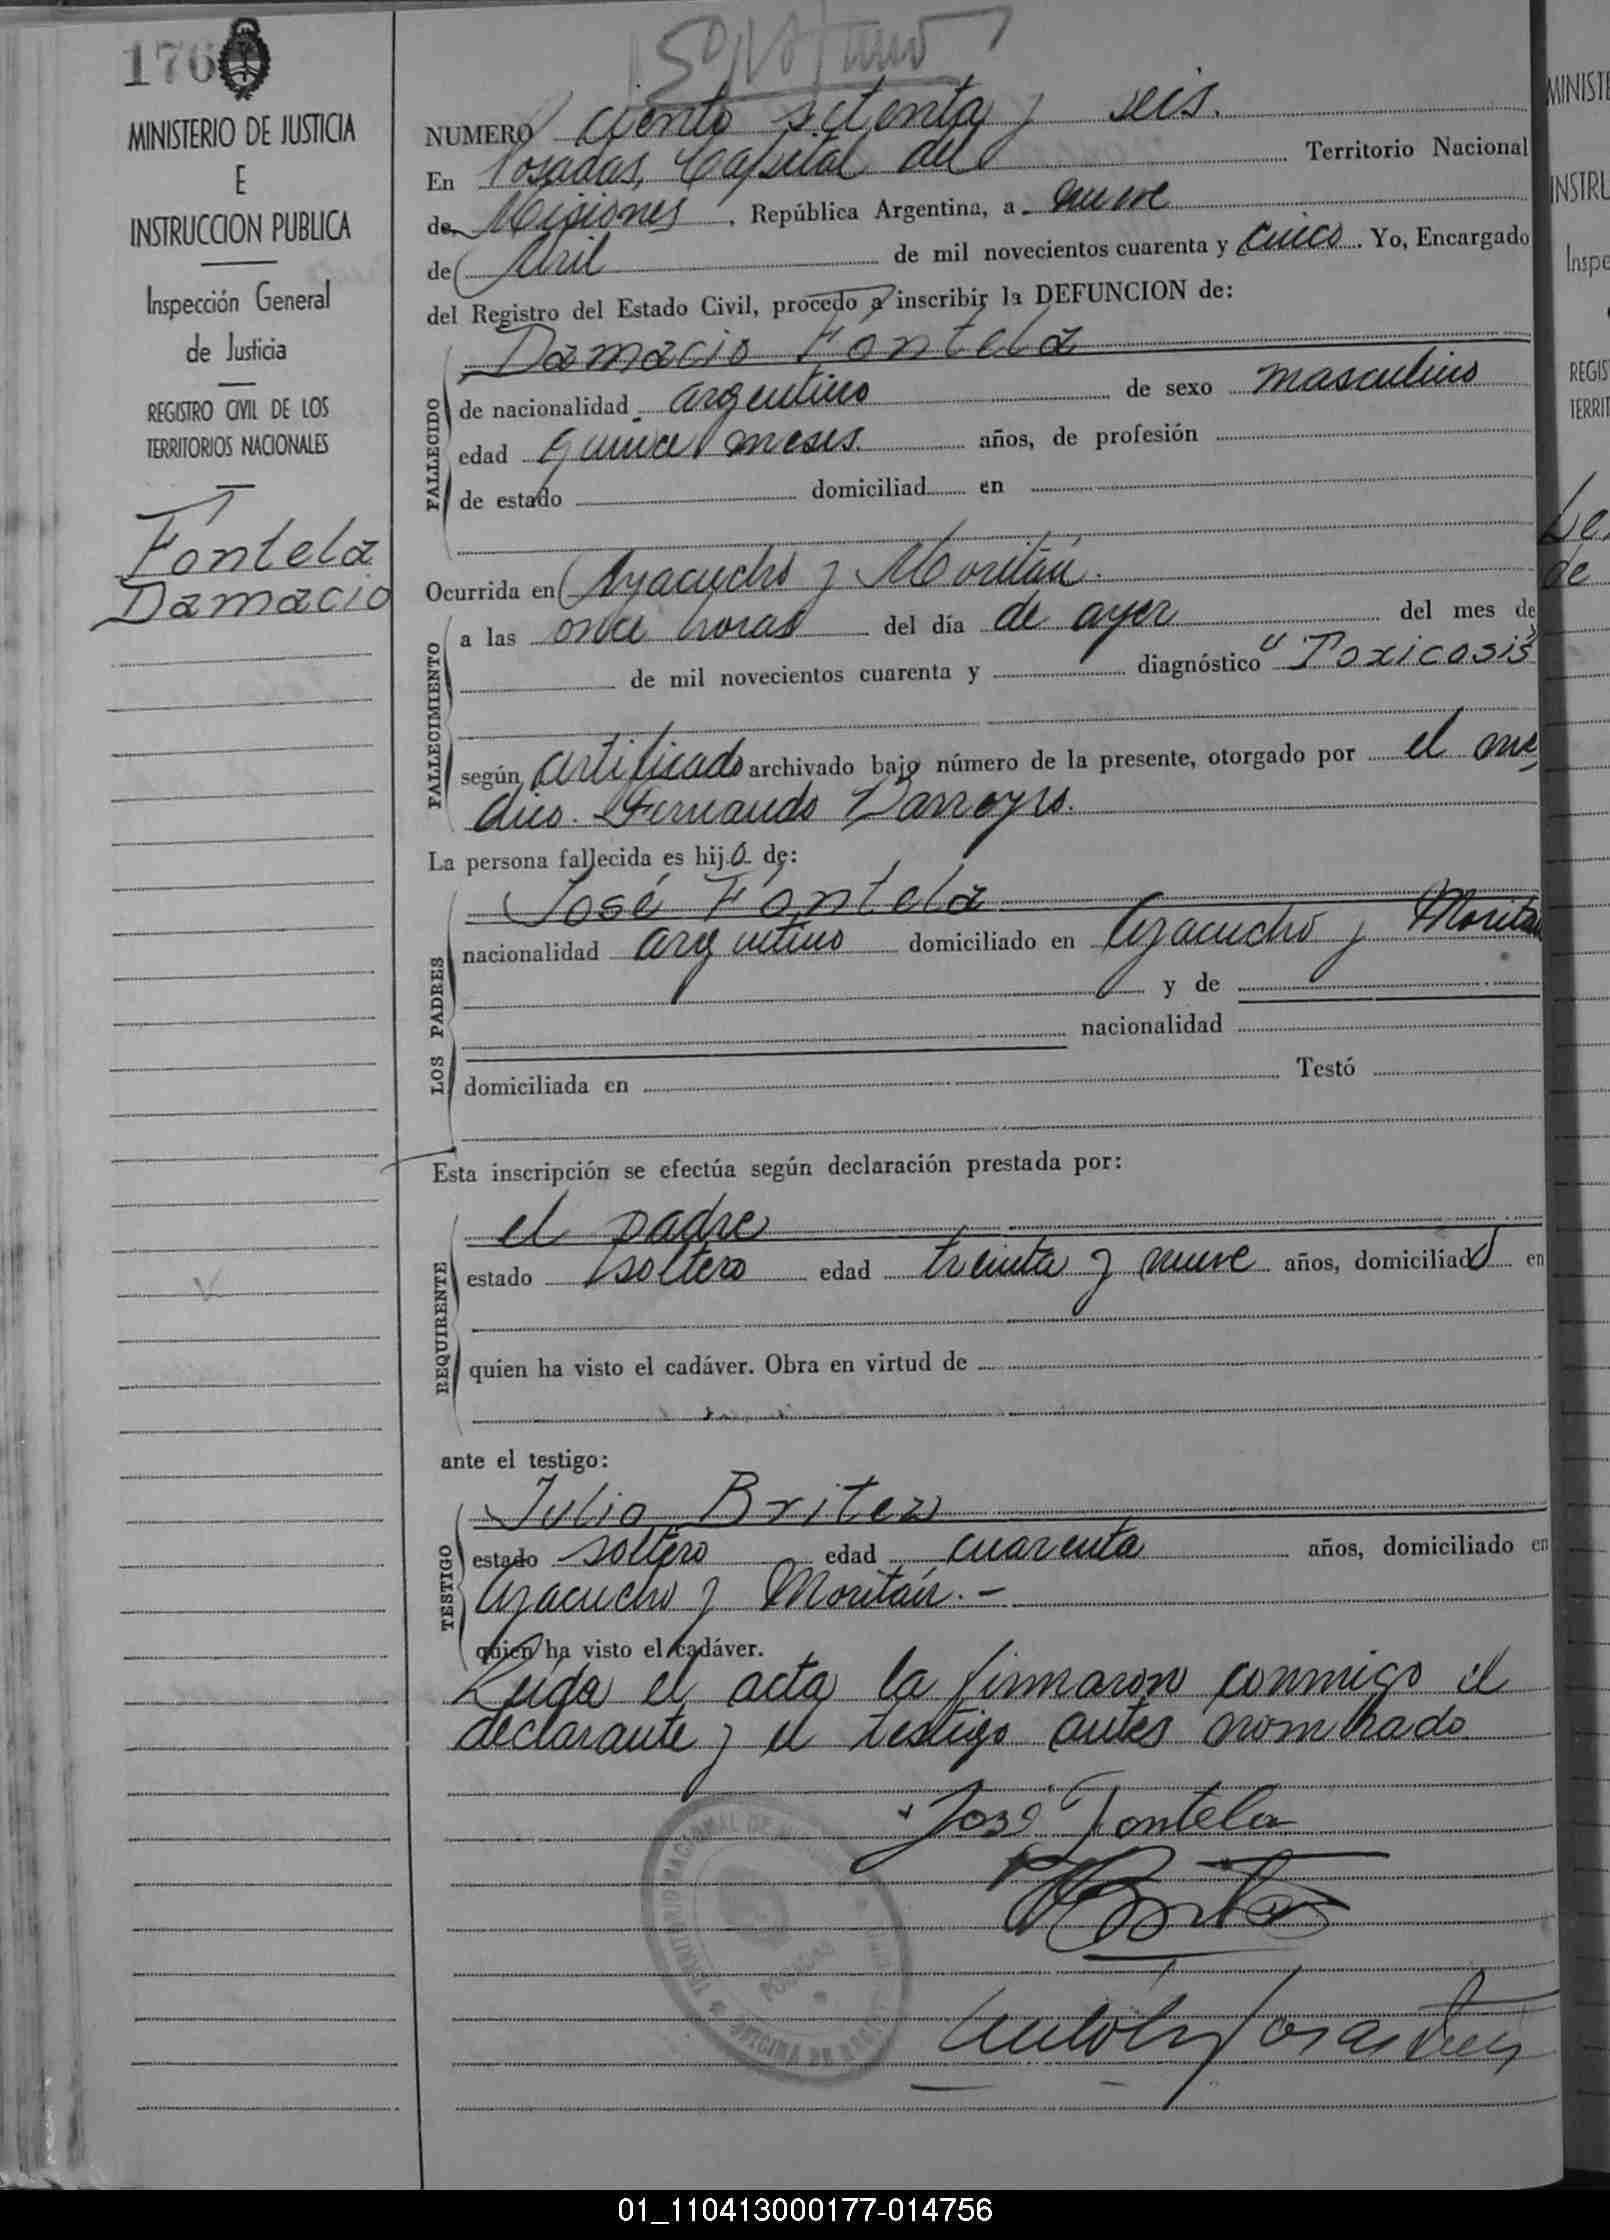 176
MINISTERIO DE JUSTICIA
E
INSTRUCCION PUBLICA
Inspección General
de Justicia
REGISTRO CIVIL DE LOS
TERRITORIOS NACIONALES
Fontela
Damacio
NUMERO ciento setenta y seis.
En Posadas, Capital del Territorio Nacional
de Misiones, República Argentina, a nueve
de Abril de mil novecientos cuarenta y cinco. Yo, Encargado
del Registro del Estado Civil, procedo a inscribir la DEFUNCION de:
FALLECIDO
Damacio Fontela
de nacionalidad argentino de sexo masculino
edad quince meses. años, de profesión
de estado domiciliad en
Ocurrida en Ayacucho y Moritán.
FALLECIMIENTO
a las once horas del día de ayer del mes de
de mil novecientos cuarenta y diagnóstico "Toxicosis"
según certificado archivado bajo número de la presente, otorgado por el mé
dico. Fernando Barreyro.
La persona fallecida es hijo de:
LOS PADRES
José Fontela
nacionalidad argentino domiciliado en Ayacucho y Moritán
y de
nacionalidad
domiciliada en Testó
Esta inscripción se efectúa según declaración prestada por:
REQUIRENTE
el padre
estado soltero edad treinta y nueve años, domiciliado en
quien ha visto el cadáver. Obra en virtud de
ante el testigo:
TESTIGO
Julio Britez
estado soltero edad cuarenta años, domiciliado en
Ayacucho y Moritán.-
quien ha visto el cadáver.
Leída el acta la firmaron conmigo el
declarante y el testigo antes nombrado
José Fontela
POSADAS
01_110413000177-014756